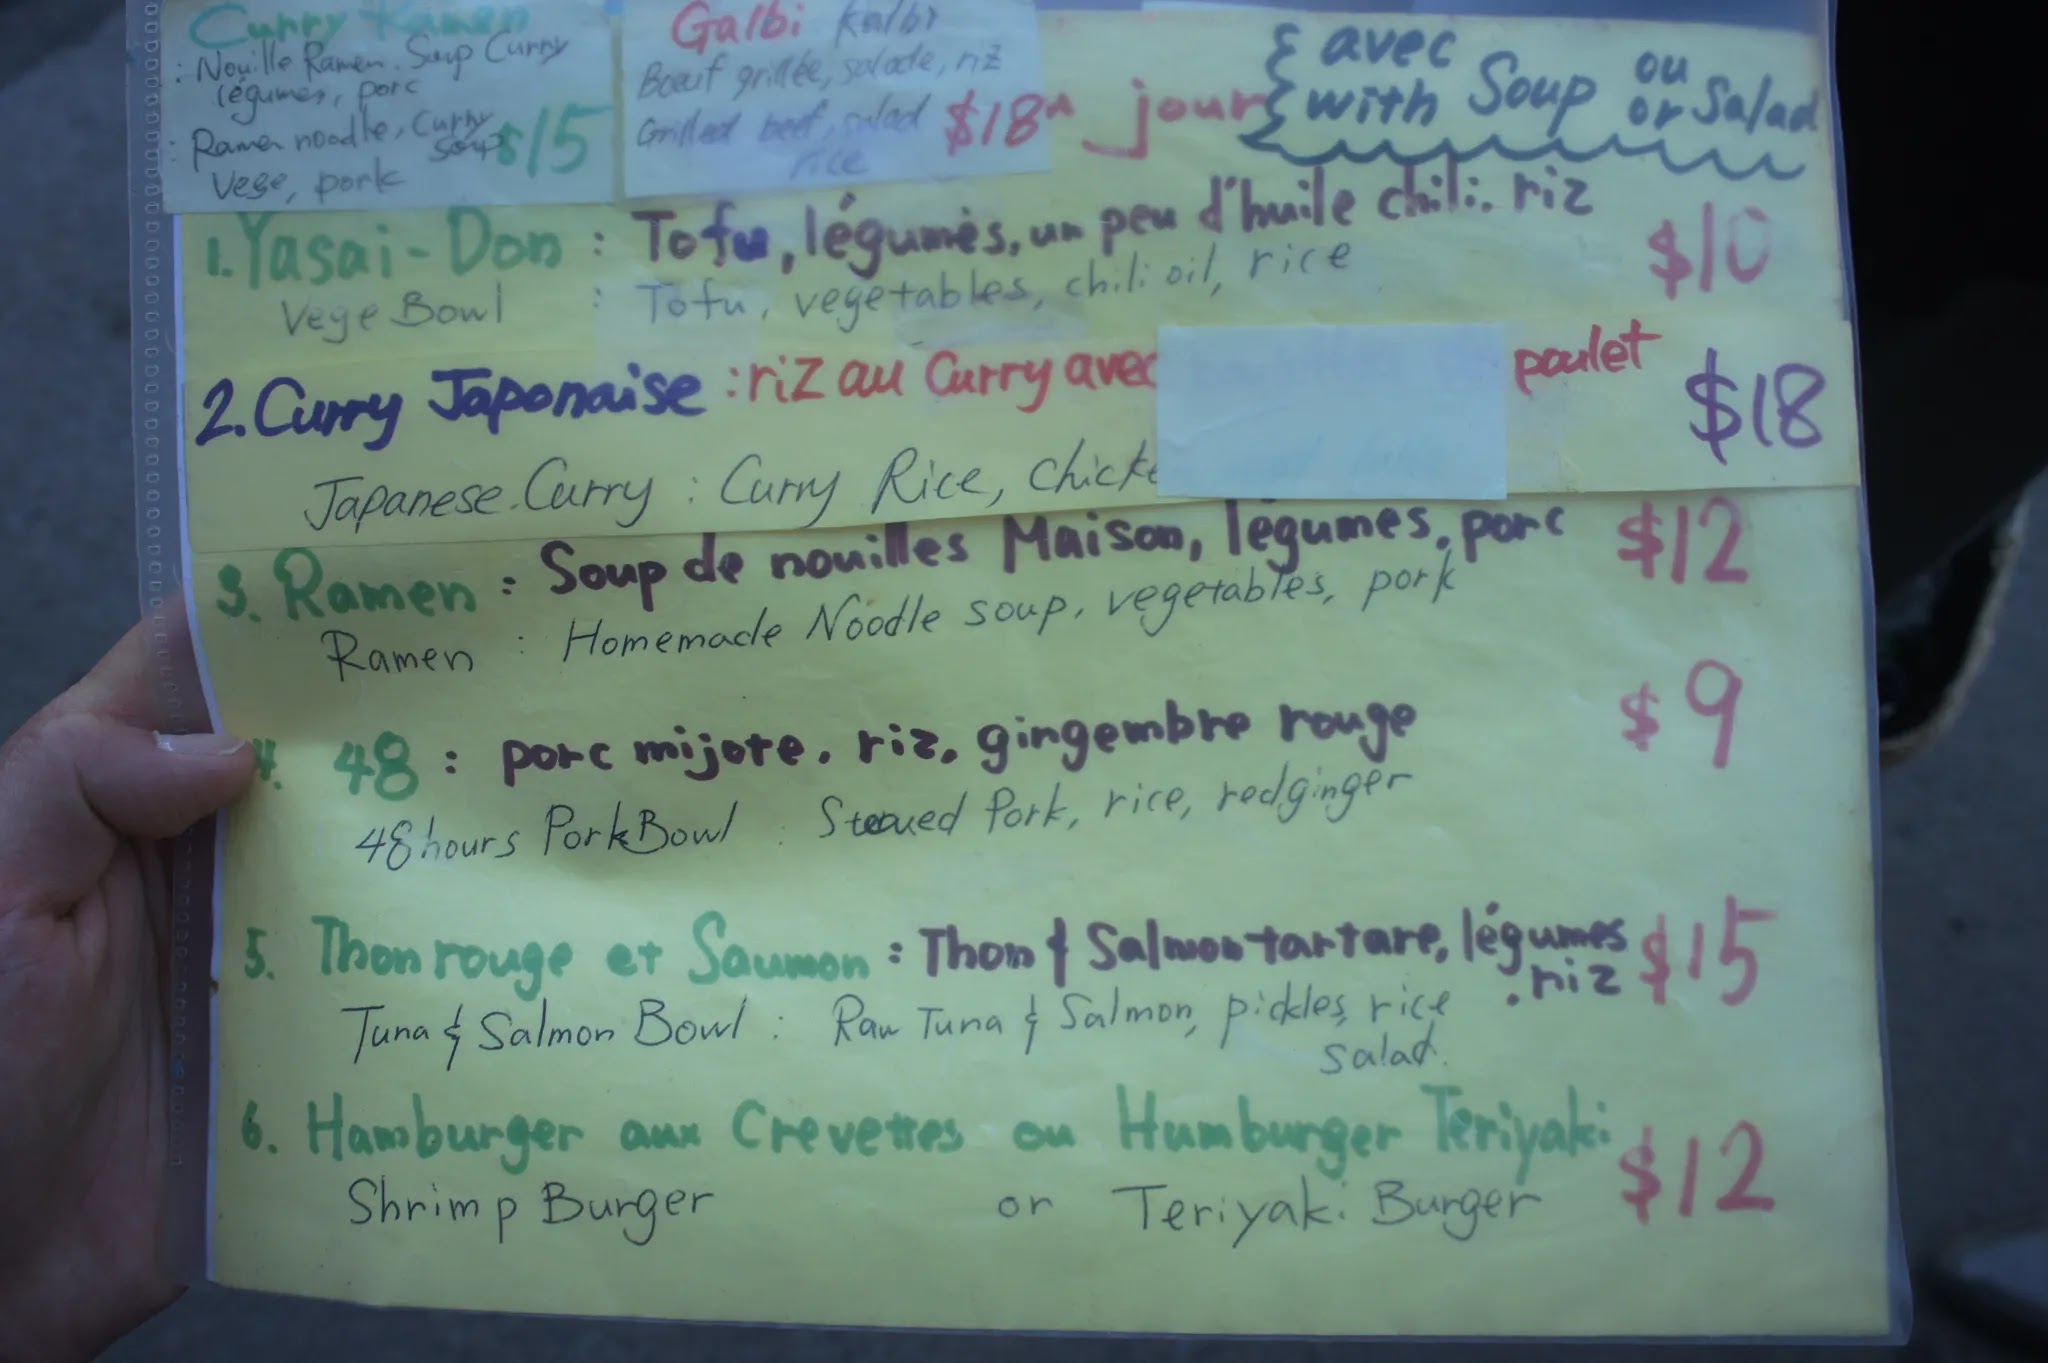 Curry Ramen
: Nouille Ramen. Soup Curry
légumes, porc
: Ramen noodle, Curry
soup $15
Vege, pork
Galbi Kalbi
Bœuf grillée, salade, riz
Grilled beef, salad $18
rice
jour
avec ou
with Soup or Salad
1. Yasai-Don : Tofu, légumes, un peu d'huile chili. riz $10
Vege Bowl : Tofu, vegetables, chili oil, rice
2. Curry Japonaise : riz au Curry avec poulet $18
Japanese. Curry : Curry Rice, chicke
3. Ramen : Soup de nouilles Maison, légumes. porc $12
Ramen : Homemade Noodle soup, vegetables, pork
4. 48 : porc mijote. riz. gingembre rouge $9
48 hours Pork Bowl : Stewed Pork, rice, red ginger
5. Thon rouge et Saumon : Thon & Salmon tartare, légumes $15
. riz
Tuna & Salmon Bowl : Raw Tuna & Salmon, pickles, rice
salad.
6. Hamburger aux Crevettes ou Humburger Teriyaki $12
Shrimp Burger or Teriyaki Burger